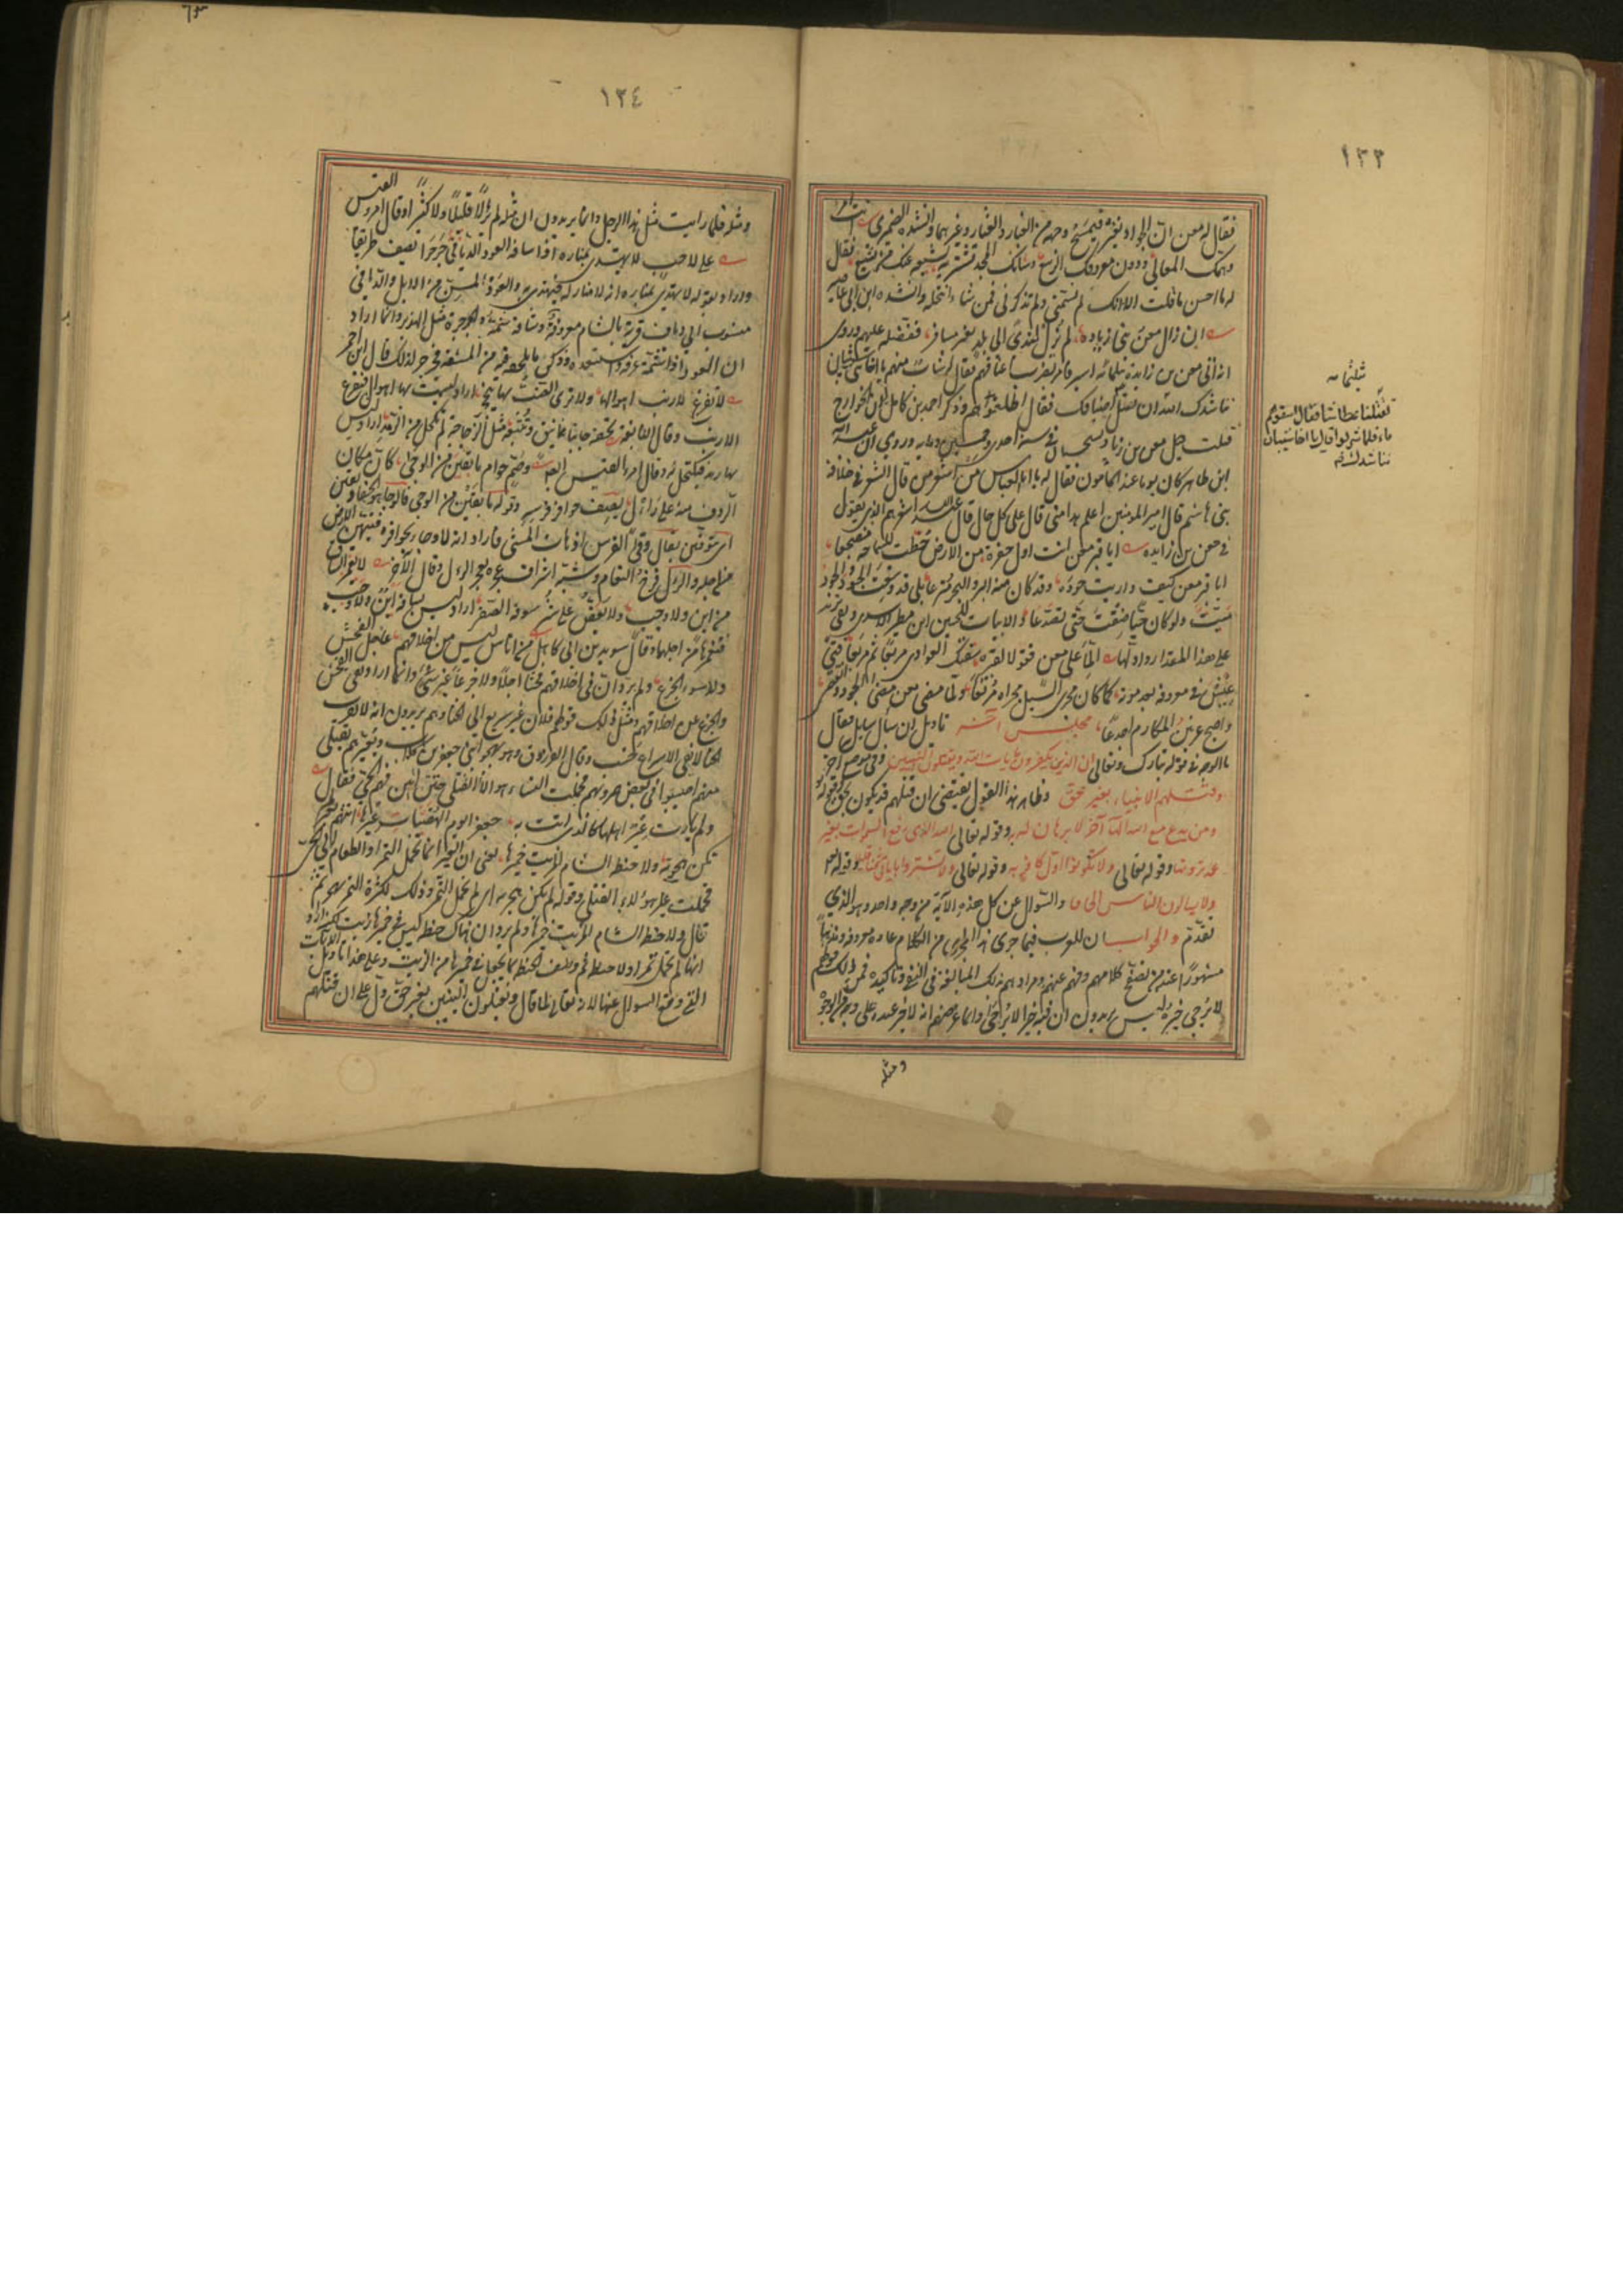 ١٣٣
فقال له معن ان الجواد يعثر فيمسح وجهه من الغبار والعثار وغيرهما وانشده الضمري انت امرؤ
همك المعالي ودون معروفك الربيع وشانك المجد تشتريه يشيعه عنك من يشيع فقال
له ما احسن ما قلت الا انك لم تسمني ولم تذكرني فمن شاء انتحله وانشده ابن ابي عاصيه
ان زال معن بني زياده لم يزل لندى الى بلد بغير مسافر ففضله عليهم وروى
انه اتى معن بن زايدة بثلثمائه اسير فامر بضرب اعناقهم فقال له شاب منهم يا اخا شيبان
نناشدك الله ان تقتل اضيافك فقال اطلقوهم وذكر احمد بن كامل ان الخوارج
قتلت معن بن زايدة بسجستان في سنة احدى وخمسين ومايه وروي ان عبد الله
ابن طاهر كان يوما عند المأمون فقال له يا ابا العباس من اشعر من قال الشعر في خلافة
بني هاشم قال امير المومنين اعلم بهذا مني قال على كل حال قال عبد الله اشعرهم الذي يقول
في معن بن زايده ايا قبر معن انت اول حفرة من الارض خطت للسماحة مضجعا
ايا قبر معن كيف واريت جوده وقد كان منه البر والبحر مترعا بلى قد وسعت الجود والجود
ميت ولو كان حيا ضقت حتى تصدعا الابيات للحسين ابن مطير الاسدي
على هذا المقدار واولها الما على معن فقولا لقبره سقتك الغوادي مربعا ثم مربعا فتى
عيش في معروفه بعد موته كما كان مجرى السيل مجراه مرتعا ولما مضى معن مضى الجود وانقضى
واصبح عرنين المكارم اجدعا مجلس اخر تاويل ان سأل سايل فقال
ما الوجه في قوله تبارك وتعالى ان الذين يكفرون بايات الله ويقتلون النبيين وفي موضع اخر
وقتلهم الانبياء بغير حق وظاهر هذا القول يقتضي ان قتلهم قد يكون بحق وقوله
ومن يدع مع الله الها آخر لا برهان له به وقوله تعالى الله الذي رفع السموات بغير
عمد ترونها وقوله تعالى ولا تكونوا اول كافر به وقوله تعالى ولا تشتروا باياتي ثمنا قليلا وقوله
ولا يسالون الناس الحافا والسؤال عن كل هذه الآية من وجه واحد وهو الذي
تقدم والجواب ان للعرب فيما جرى هذا المجرى من الكلام عادة معروفة ومذهبا
مشهورا عند من تصفح كلامهم وفهم عنهم ومرادهم بذلك المبالغة في النفي وتاكيده فمن ذلك قولهم
لا يرجى خيره ليس يريدون ان فيه خيرا لا يرجى وانما غرضهم انه لا خير عنده على وجه من الوجوه
ومثله
ثلثمائه
تقتلنا عطاشا فقال اسقوهم
ماء فلما شربوا قال يا اخا شيبان
نناشدك الله
١٣٤
ومثله قلما رايت مثل هذا الرجل وانما يريدون ان مثله لم ير لا قليلا ولا كثيرا وقال امرؤ القيس
على لاحب لا يهتدى بمناره اذا سافه العود الديافي جرجرا يصف طريقا
واراد بقوله لا يهتدى بمناره انه لا منار له فيهتدى به والعود المسن من الابل والديافي
منسوب الى دياف قرية بالشام معروفة وسافه شمه والجرجرة مثل الهدير وانما اراد
ان العود اذا شمه عرفه واستبعده وذكر ما يلحقه فيه من المشقه فجرجر لذلك قال ابن احمر
لا تفزع الارنب اهوالها ولا ترى الضب بها ينجحر اراد ليست بها اهوال فتفزع
الارنب وقال النابغة يحفه جانبا نيق وتتبعه مثل الزجاجة لم تكحل من الرمد اراد ليس
بها رمد فتكتحل له وقال امرؤ القيس ايضا وصم حوام ما يقين من الوجى كان مكان
الردف منه على رأل يصف حوافر فرسه وقوله ما يقين من الوجى فالوجا هو الحفا ويقين
اي يتوقين يقال وقى الفرس اذا هاب المشي فاراد انه لا وجا بحوافره فيتهيبن الارض
من اجله والرأل فرخ النعام وشبه اشراف عجزه بعجز الرأل وقال الآخر لا يغمز الساق
من اين ولا وجب ولا يعض على شرسوفه الصفر اراد ليس بساقه اين ولا وجب
فيغمزها من اجلهما وقال سويد بن ابي كاهل من اناس ليس من اخلاقهم عاجل الفحش
ولا سوء الجزع ولم يرد ان في اخلاقهم فحشا اجلا ولا جزعا غير سيئ وانما اراد نفى الفحش
والجزع عن اخلاقهم ومثل ذلك قولهم فلان غير سريع الى الخنا وهم يريدون انه لا يقرب
الخنا لا نفى الاسراع حسب وقال الفرزدق وهو يهجو ابني جعفر بن كلاب ويعيرهم بقتلى
منهم اصيبوا في بعض حروبهم فحملت النساء هؤلاء القتلى حتى اتين بهم الحي فقال
ولم تات عير اهلها كالذي اتت به جعفرا يوم الهضيبات عيرها اتتهم بعير لم
تكن هجرية ولا حنطة الشام المزيت خميرها يعني ان العير انما تحمل التمر او الطعام الى الحي
فحملت عير هؤلاء القتلى وقوله لم تكن هجرية اي لم تحمل التمر وذلك لكثرة التمر بهجر ثم
قال ولا حنطة الشام المزيت خميرها ولم يرد ان هناك حنطة ليس في خميرها زيت لكنه اراد
انها لم تحمل تمرا ولا حنطة ثم وصف الحنطة بما يجعل في خميرها من الزيت وعلى هذا تاويل الايات
التي وقع السوال عنها لانه تعالى لما قال ويقتلون النبيين بغير حق دل على ان قتلهم